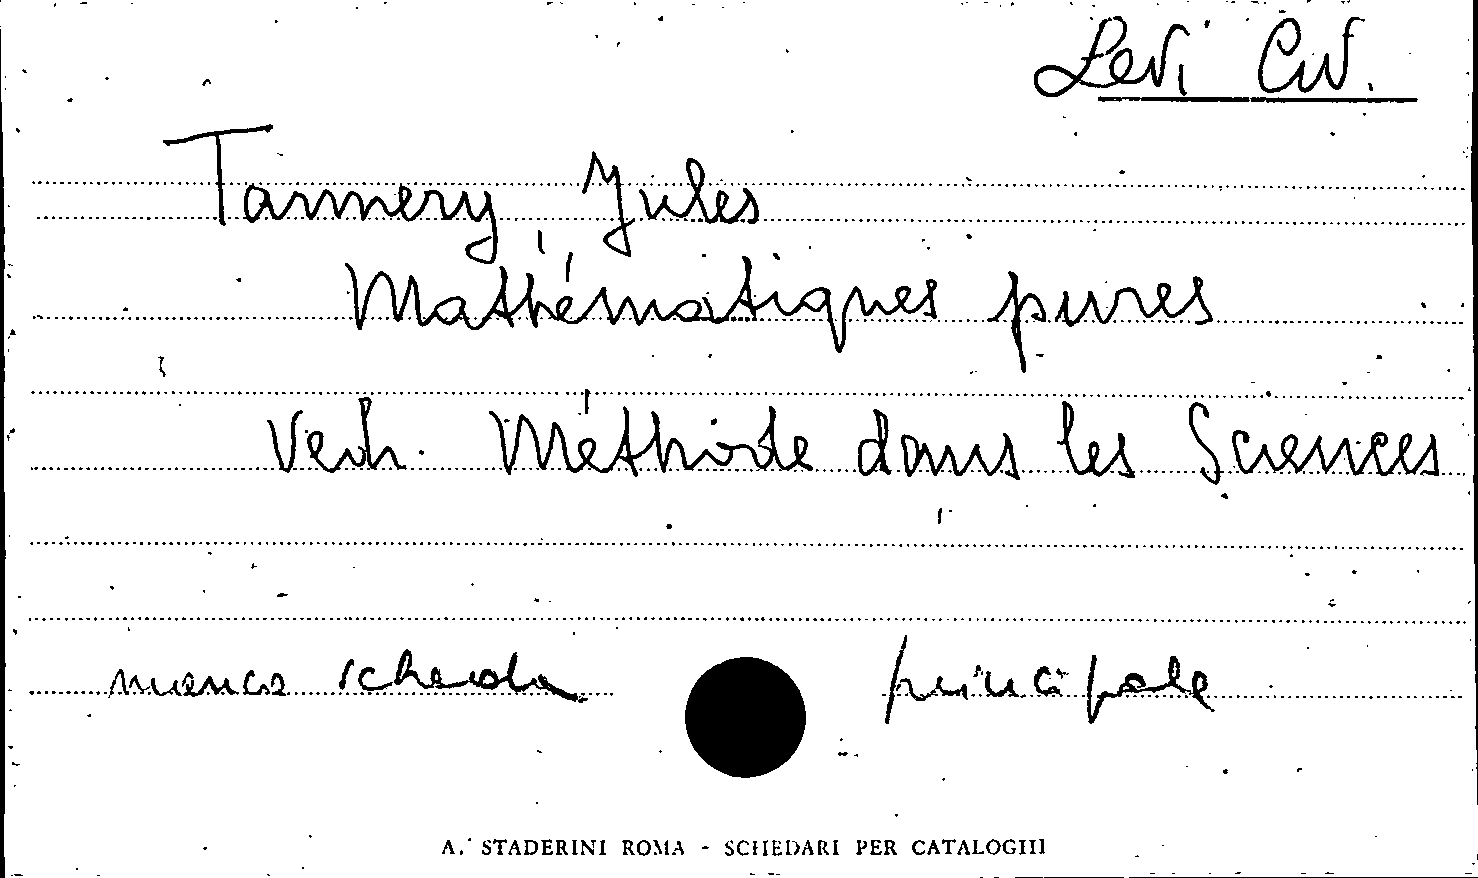 Levi Civ.
Tannery, Jules
Mathématiques pures
Vedi. Méthode dans les Sciences
manca scheda principale
A. STADERINI ROMA - SCHEDARI PER CATALOGHI